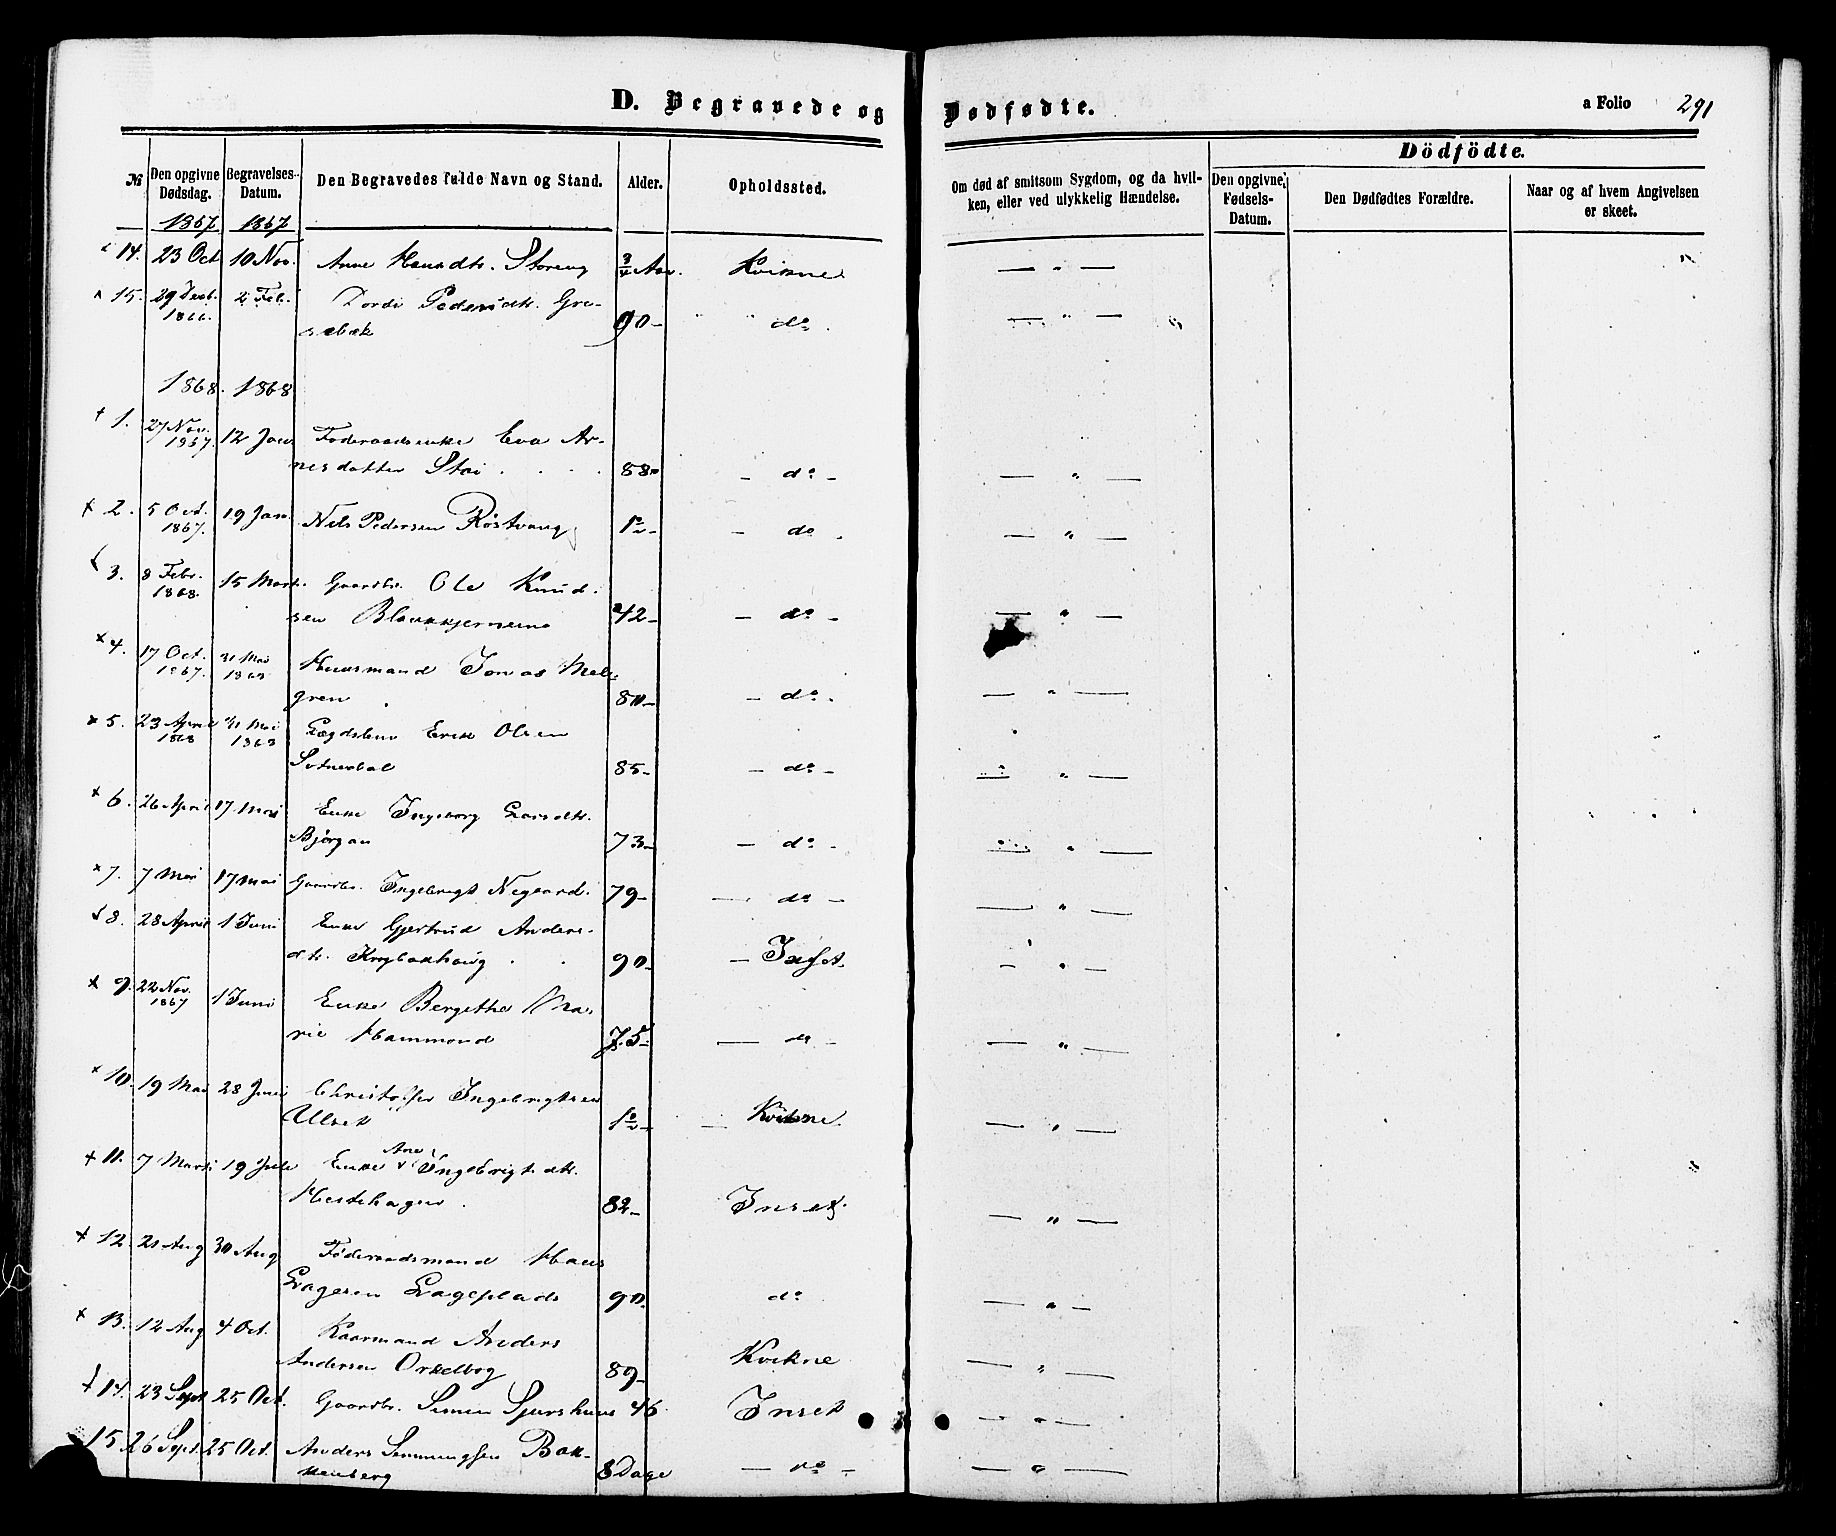 D. Begravede og Dødfødte.
a Folio 291
№
Den opgivne Dødsdag.
Begravelses-Datum.
Den Begravedes fulde Navn og Stand.
Alder.
Opholdssted.
Om død af smitsom Sygdom, og da hvil-
ken, eller ved ulykkelig Hændelse.
Dödfödte.
Den opgivne Fødsels-Datum.
Den Dødfødtes Forældre.
Naar og af hvem Angivelsen
er skeet.
1867 1867
14. 23 Oct 10 Nov. Anne Hansdtr. Storeng 3/4 Aar. Kvikne — " —
15. 29 Decb. 2 Feb. Dordi Pedersdtr. Gre-
1866. sebæk 90- " " do. — " —
1868. 1868
1. 27 Nov. 12 Jan Føderaadsenke Eva Ar-
1867. nesdatter Stai . . . 88- - do - — " —
2. 5 Oct. 19 Jan. Nils Pedersen Røstvang 1/2- - do . — " —
1867.
3. 8 Febr. 15 Mart. Gaardbr. Ole Knud-
1868. sen Blankkjernmo 42- - do - — " —
4. 17 Oct. 31 Mai Huusmand Jonas Mel-
1867. 1868 gren 80- - do. — " —
5. 23 April 31 Mai Lægdslem Erik Olsen
1868 1868 85- - do - — " —
6. 26 April 17 Mai Enke Ingeborg Larsdtr.
Bjørgan 73- - do - — " —
7. 7 Mai 17 Mai Gaardbr. Ingebrigt Negaard. 79- — do - — " —
8. 28 April 1 Juni Enke Gjertrud Anders-
dtr. . . 90- - Inset — " —
9. 22 Nov. 1 Juni Enke Bergethe Ma-
1867 rie Hammond 75- — do - — " —
10. 19 Mai 28 Juni Christoffer Ingebrigtsen
Ulset 1/2- — Kvikne. — " —
11. 7 Marts 19 Jule Enke Ane Ingebrigtsdtr.
Hestehagen . 82- Inset. — " —
12. 21 Aug 30 Aug Føderaadsmand Hans
Lagesen Lageplads 90. do — " —
13. 12 Aug 4 Oct. Kaarmand Anders
Andersen Orkelbog 89- Kvikne — " —
14. 23 Sept 25 Oct. Gaardbr. Simen Sjurshuus 46 Inset — " —
15 26 Sept. 25 Oct. Anders Simmingsen Bak-
kenberg 8 Dage - do - — " —